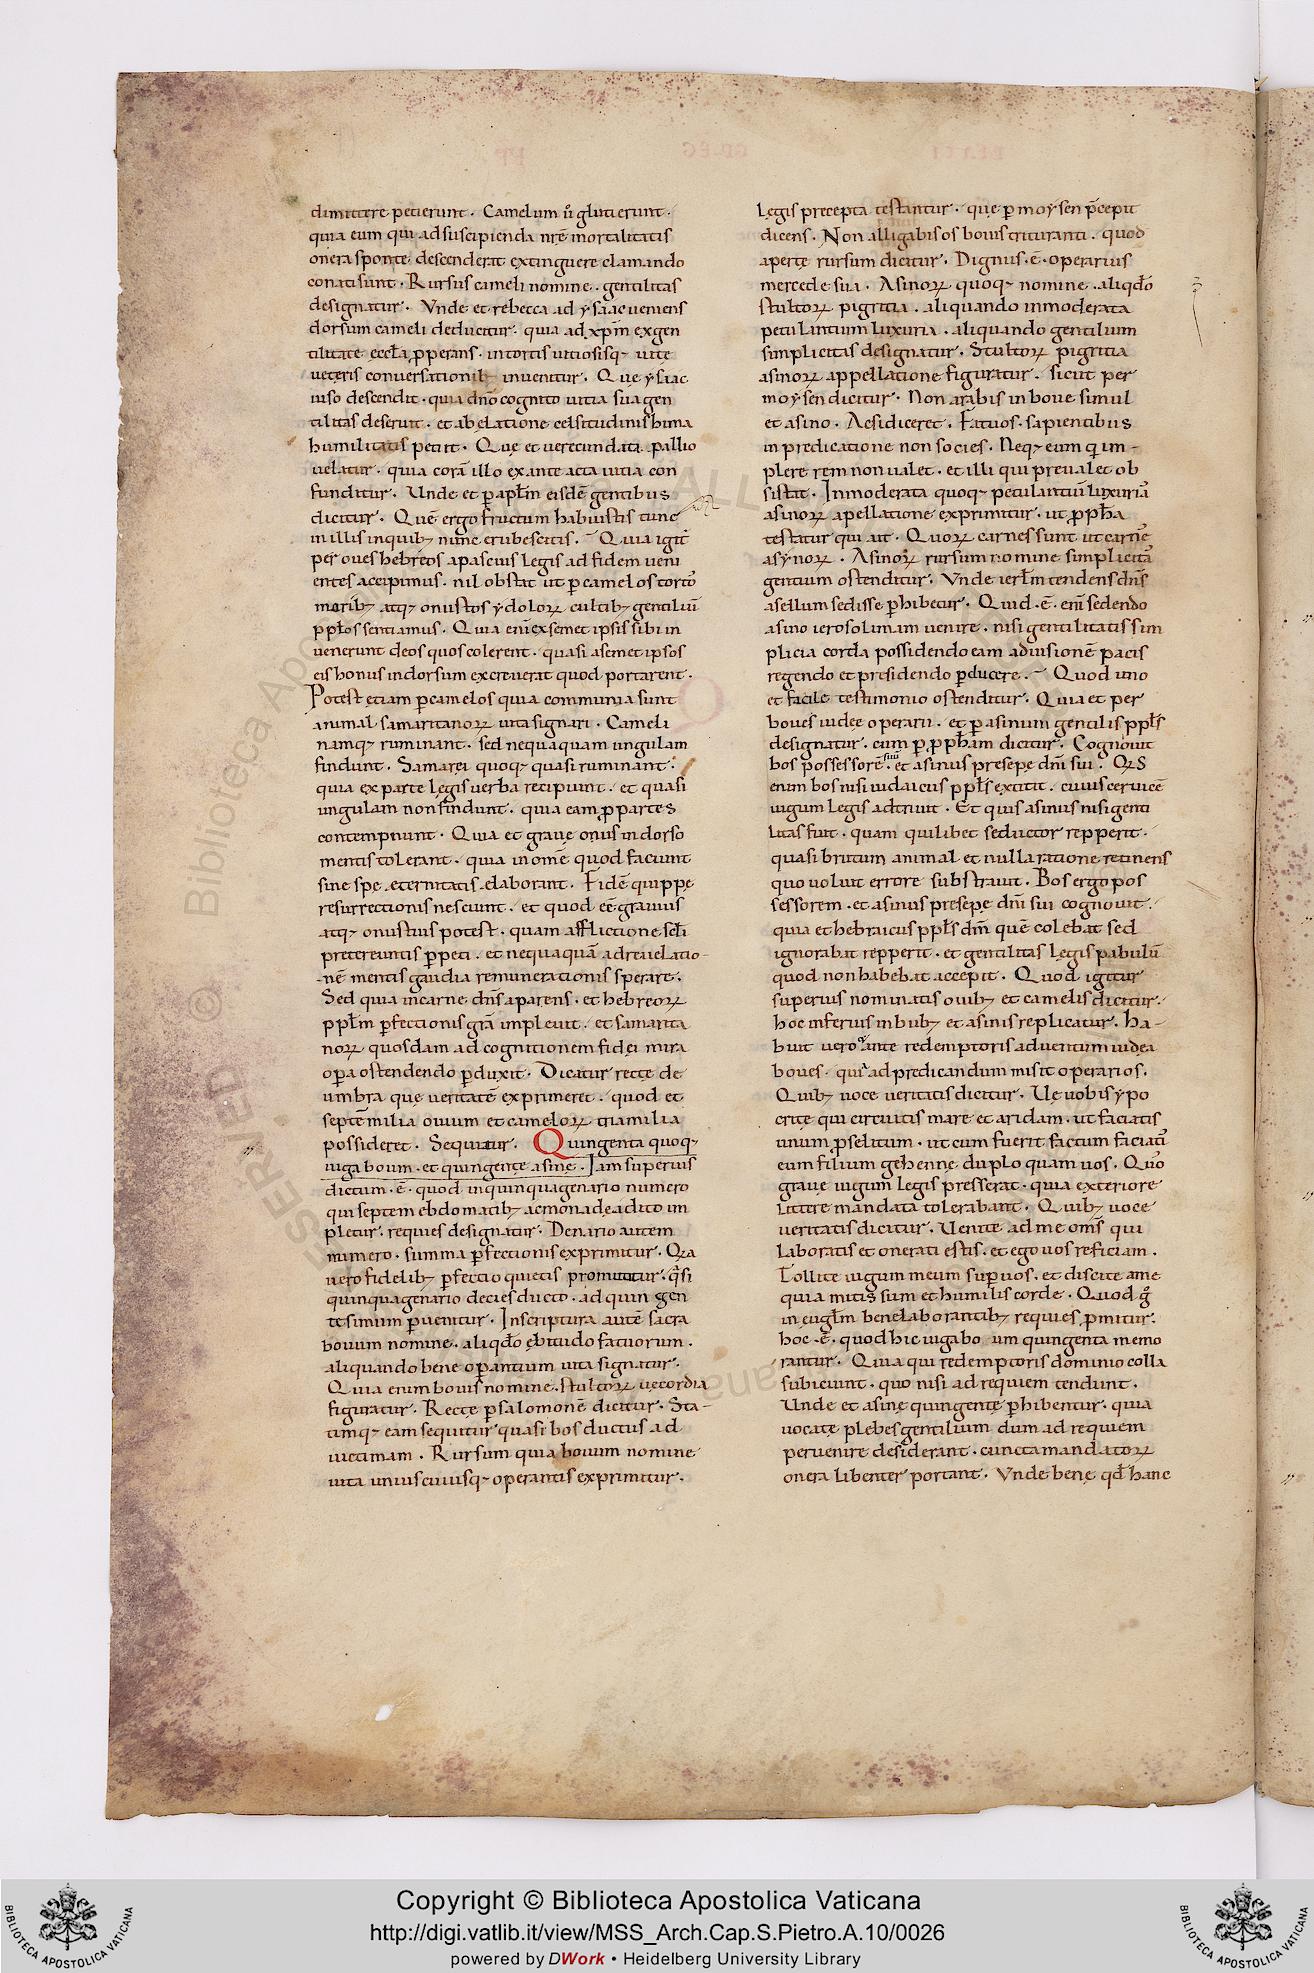 dimittere petierunt. Camelum u͛ glutierunt.
quia eum qui ad suscipienda nr̄e mortalitatis
onera sponte descenderat extinguere clamando
conati sunt. Rursus cameli nomine. gentilitas
designatur. Vnde et rebecca ad ysaac ueniens
dorsum cameli deducitur. quia ad xp̄m ex gen
tilitate eccl̄a p̱perans. in tortis uitiosisq; uitę
ueteris conuersationib; inuenitur. Que ysaac
uiso descendit. quia dn̄o cognito uitia sua gen
tilitas deseruit. et ab elatione celsitudinis hima
humilitatis petiit. Quę et uerecundata pallio
uelatur. quia corā illo ex ante acta uitia con
funditur. Unde et p̱ apl̄m eisdē gentibus
dicitur. Quē ergo fructum habuistis tunc
in illis in quib; nunc erubescitis. Quia igit̄
per oues hebreos a pascuis legis ad fidem ueni
entes accipimus. nil obstat ut p̱ camelos tortos
morib; atq; onustos ydoloꝝ cultib; gentiliū
pp̄los sentiamus. Quia eni͞ ex semet ipsis sibi in
uenerunt deos quos colerent. quasi a semet ipsos
eis honus in dorsum excreuerat quod portarent.
Potest etiam p̱ camelos quia communia sunt
animal samaritanoꝝ uita signari. Cameli
namq; ruminant. sed nequaquam ungulam
findunt. Samarei quoq; quasi ruminant.
quia ex parte legis uerba recipiunt. et quasi
ungulam non findunt. quia eam p̱ partes
contempnunt. Quia et graue onus in dorso
mentis tolerant. quia in omē quod faciunt
sine spe ęternitatis elaborant. Fidē quippe
resurrectionis nesciunt. et quod eē grauius
atq; onustius potest. quam afflictione sc̄li
pretereuntis p̱peti. et nequaquā ad reuelatio-
nē mentis gaudia remunerationis sperare.
Sed quia in carne dn̄s aparens. et hebreoꝝ
pp̄lm p̱fectionis gr̄a impleuit. et samarita
noꝝ quosdam ad cognitionem fidei mira
op̱a ostendendo p̱duxit. Dicatur recte de
umbra quę ueritatē exprimeret. quod et
septē milia ouium et cameloꝝ tria milia
possideret. Sequitur. Quingenta quoq;
iuga boum. et quingentę asinę. Iam superius
dictum. ē. quod in quinquagenario numero
qui septem ebdomatib; ac monade adito im
pletur. requies designatur. Denario autem
numero. summa p̱fectionis exprimitur. Qꝛa
uero fidelib; p̱fectio quietis promittitur. q̄si
quinquagenario decies ducto. ad quin gen
tesimum p̱uenitur. In scriptura autē sacra
bouum nomine. aliqdō ębitudo fatuorum.
aliquando bene op̱antium uita signatur.
Quia enim bouis nomine. stultoꝝ uęcordia
figuratur. Rectę p̱ salomonē dicitur. Sta-
timq; eam sequitur quasi bos ductus ad
uictimam. Rursum quia bouum nomine
uita uniuscuiusq; operantis exprimitur.
legis precepta testantur. quę p̱ moysen p̄cepit
dicens. Non alligabis os boui trituranti. quod
apertę rursum dicitur. Dignus. ē. operarius
mercede sua. Asinoꝝ quoq; nomine. aliqdō
stultoꝝ pigritia. aliquando inmoderata
petulantium luxuria. aliquando gentilium
simplicitas designatur. Stultoꝝ pigritia
asinoꝝ appellatione figuratur. sicut per
moysen dicitur. Non arabis in boue simul
et asino. Ac si diceret. Fatuos. sapientibus
in predicatione non socies. Neq; eum q im-
plere rem non ualet. et illi qui preualet ob
sistat. Inmoderata quoq; petulantiū luxuria
asinoꝝ apellatione exprimitur. ut p̱ph̄a
testatur qui ait. Quoꝝ carnes sunt ut carnē
asynoꝝ. Asinoꝝ rursum nomine simplicitas
gentium ostenditur. Vnde ierl̄m tendens dn̄s
asellum sedisse p̱hibetur. Quid. ē. eni͞ sedendo
asino ierosolimam uenire. nisi gentilitatis sim
plicia corda possidendo eam ad uisionē pacis
regendo et presidendo p̱ducere. Quod uno
et facile testimonio ostenditur. Quia et per
boues iudee operarii. et p̱ asinum gentilis pp̄ls
designatur. cum p̱ p̱ph̄am dicitur. Cognouit
bos possessorē suū. et asinus presepę dn̄i sui. Qꝛs
enim bos nisi iudaicus pp̄ls extitit. cuius ceruicē
iugum legis adtriuit. Et quis asinus nisi genti
litas fuit. quam quilibet seductor repperit.
quasi brutum animal et nulla ratione retinens
quo uoluit errore substrauit. Bos ergo pos
sessorem. et asinus presepę dn̄i sui cognouit.
quia et hebraicus pp̄ls dn̄m quē colebat sed
ignorabat repperit. et gentilitas legis pabulū
quod non habebat accepit. Quod igitur
superius nominatis ouib; et camelis dicitur.
hoc inferius in bub; et asinis replicatur. Ha-
buit uero ante redemptoris aduentum iudęa
boues. quia ad predicandum misit operarios.
Quib; uoce ueritatis dicitur. Ue uobis ypo
critę qui circuitis mare et aridam. ut faciatis
unum p̱selitum. ut cum fuerit factum faciatis
eum filium gehennę duplo quam uos. Quos
graue iugum legis presserat. quia exteriore
litterę mandata tolerabant. Quib; uoce
ueritatis dicitur. Uenite ad me oms̄ qui
laboratis et onerati estis. et ego uos reficiam.
Tollite iugum meum sup̱ uos. et discite a me
quia mitis sum et humilis corde. Quod g̊
in eugl̄m bene laborantib; requies p̱mitur.
hoc. ē. quod hic iuga bo um quingenta memo
rantur. Quia qui redemptoris dominio colla
subiciunt. quo nisi ad requiem tendunt.
Unde et asinę quingentę p̱hibentur. quia
uocatę plebes gentilium dum ad requiem
peruenire desiderant. cuncta mandatoꝝ
onera libenter portant. Vnde benę qd̄ hanc
Copyright © Biblioteca Apostolica Vaticana
http://digi.vatlib.it/view/MSS_Arch.Cap.S.Pietro.A.10/0026
powered by DWork • Heidelberg University Library
BIBLIOTECA APOSTOLICA VATICANA
BIBLIOTECA APOSTOLICA VATICANA